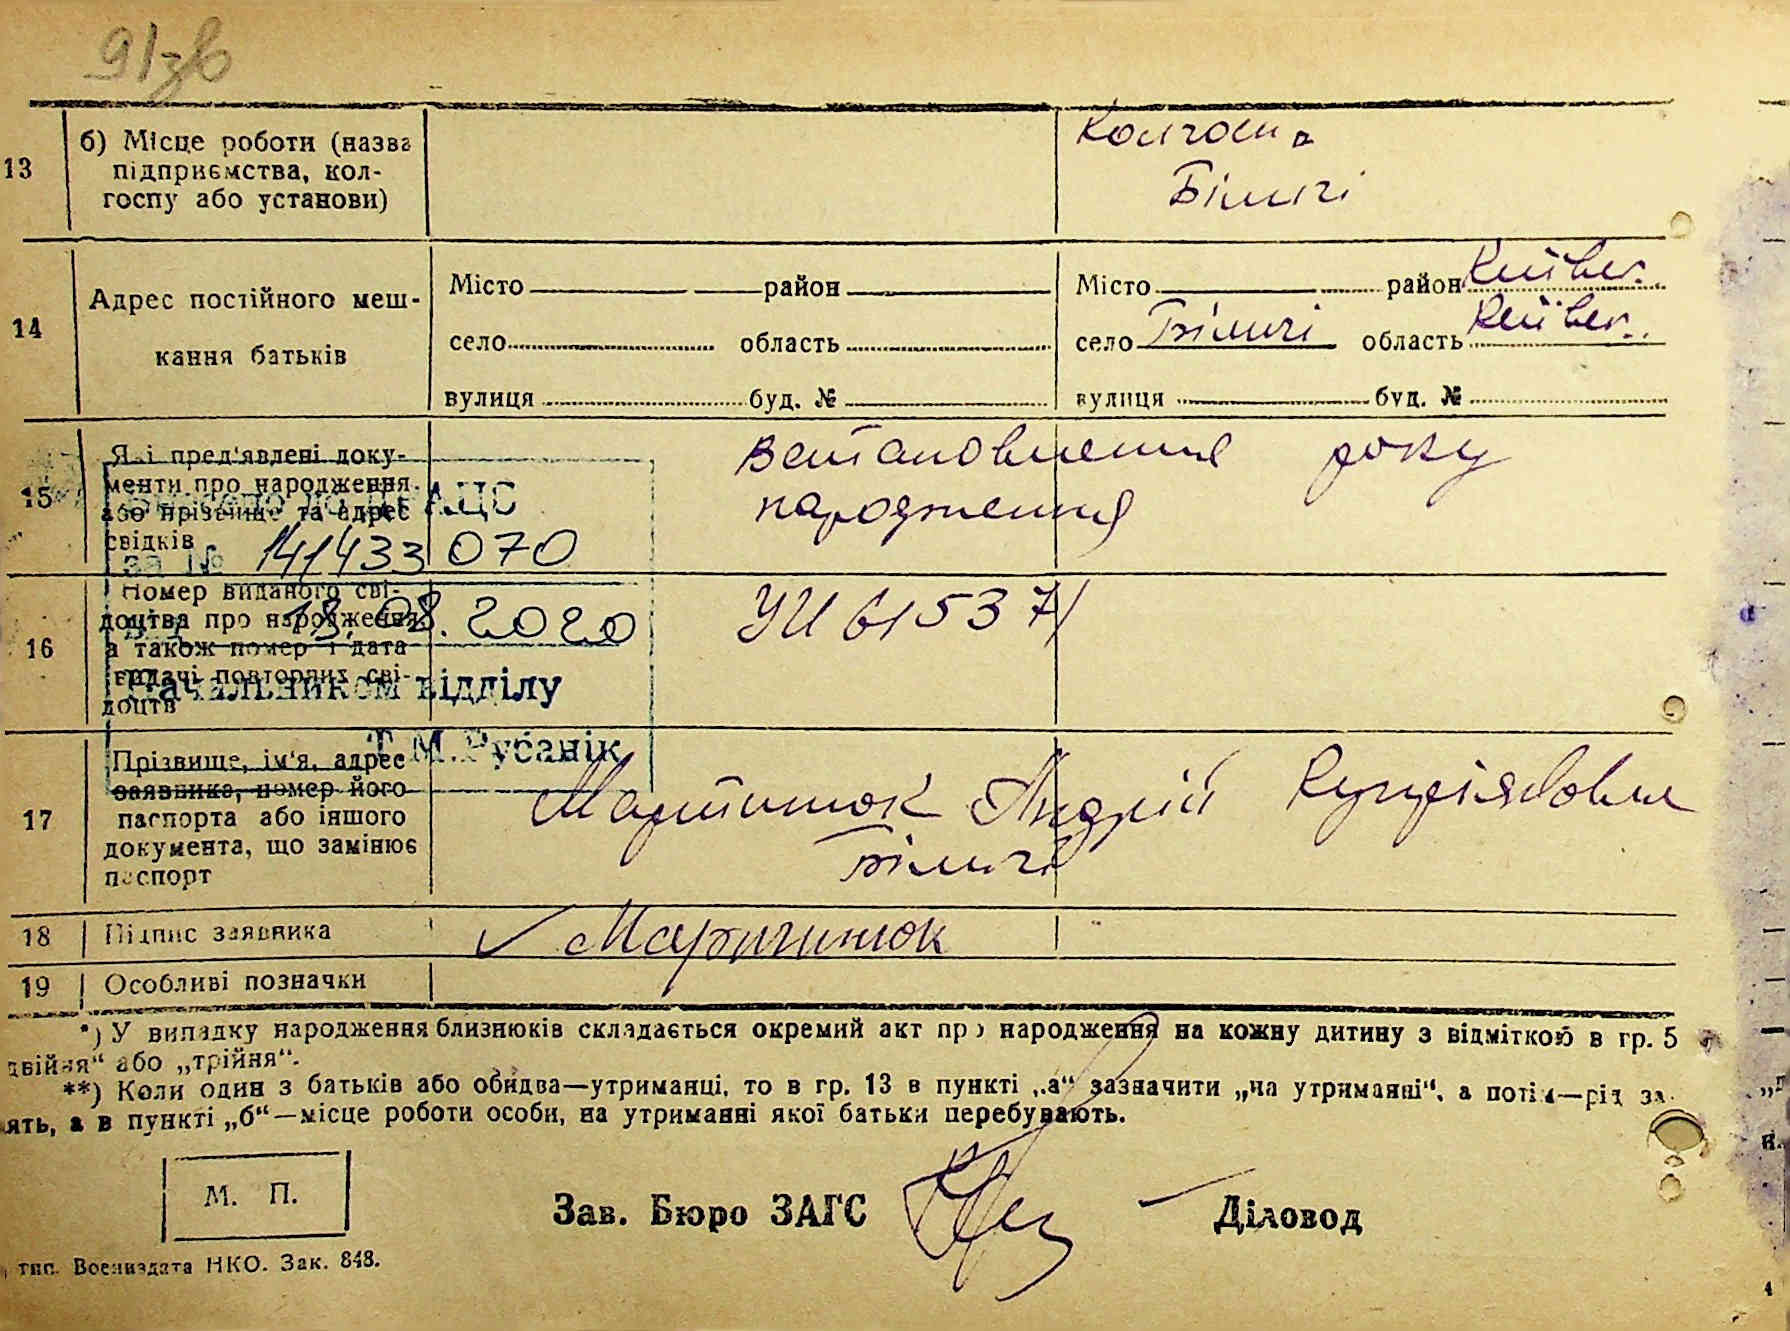 91зв
13
б) Місце роботи (назва
підприємства, кол-
госпу або установи)
Колгосп
Біличі
14
Адрес постійного меш-
кання батьків
Місто район
село область
вулиця буд. №
Місто район Київс.
село Біличі область Київс.
вулиця буд. №
15
Які пред'явлені доку-
менти про народження
або прізвище та адрес
свідків
Встановлення року
народження
ДРАЦС
за № 141433070
16
Номер виданого сві-
доцтва про народження
а також номер і дата
видачі повторних сві-
доцтв
УИ 615371
18.08.2020
Начальником відділу
Т.М.Русанік
17
Прізвище, ім'я, адрес
заявника, номер його
паспорта або іншого
документа, що замінює
паспорт
Мартинюк Андрій
Біличі
18
Підпис заявника
Мартинюк
19
Особливі позначки
*) У випадку народження близнюків складається окремий акт про народження на кожну дитину з відміткою в гр. 5
двійня“ або „трійня“.
**) Коли один з батьків або обидва—утриманці, то в гр. 13 в пункті „а“ зазначити „на утриманні“, а потім—рід за-
ять, а в пункті „б“—місце роботи особи, на утриманні якої батьки перебувають.
М. П.
Зав. Бюро ЗАГС
Діловод
тип. Воениздата НКО. Зак. 848.